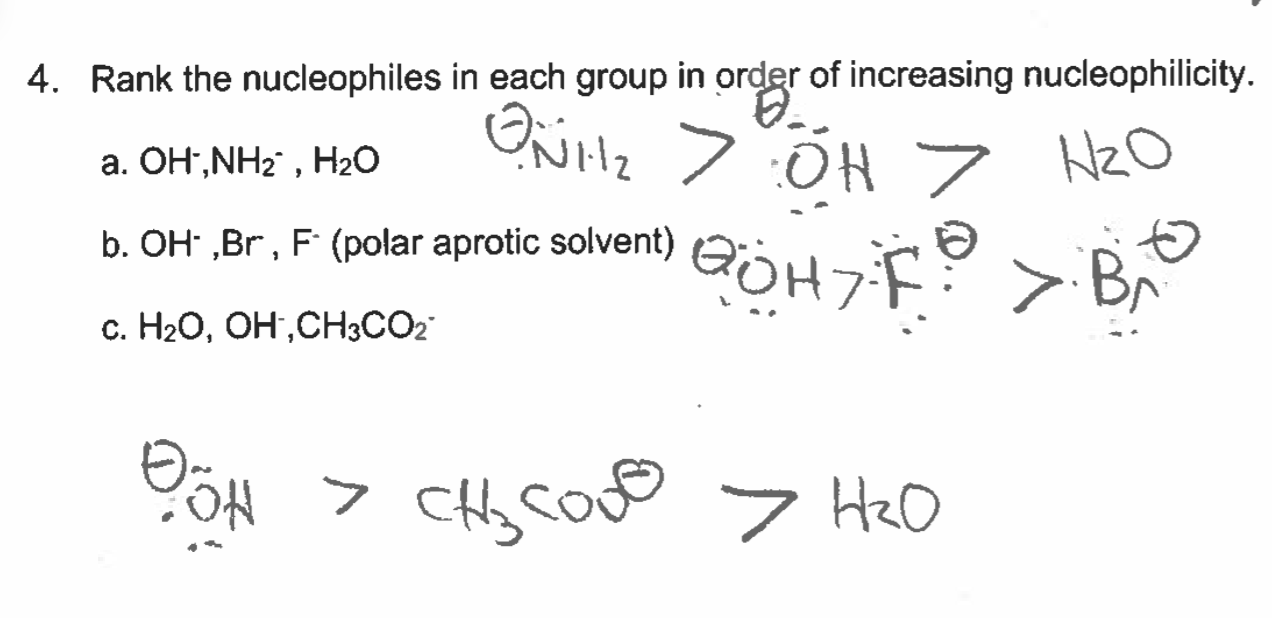 4. Rank the nucleophiles in each group in order of increasing nucleophilicity.
a. OH⁻,NH₂⁻ , H₂O ⊖NH₂ > ⊖OH > H₂O
b. OH⁻ ,Br⁻ , F⁻ (polar aprotic solvent) ⊖OH > F⊖ > Br⊖
c. H₂O, OH⁻,CH₃CO₂⁻
⊖OH > CH₃COO⊖ > H₂O